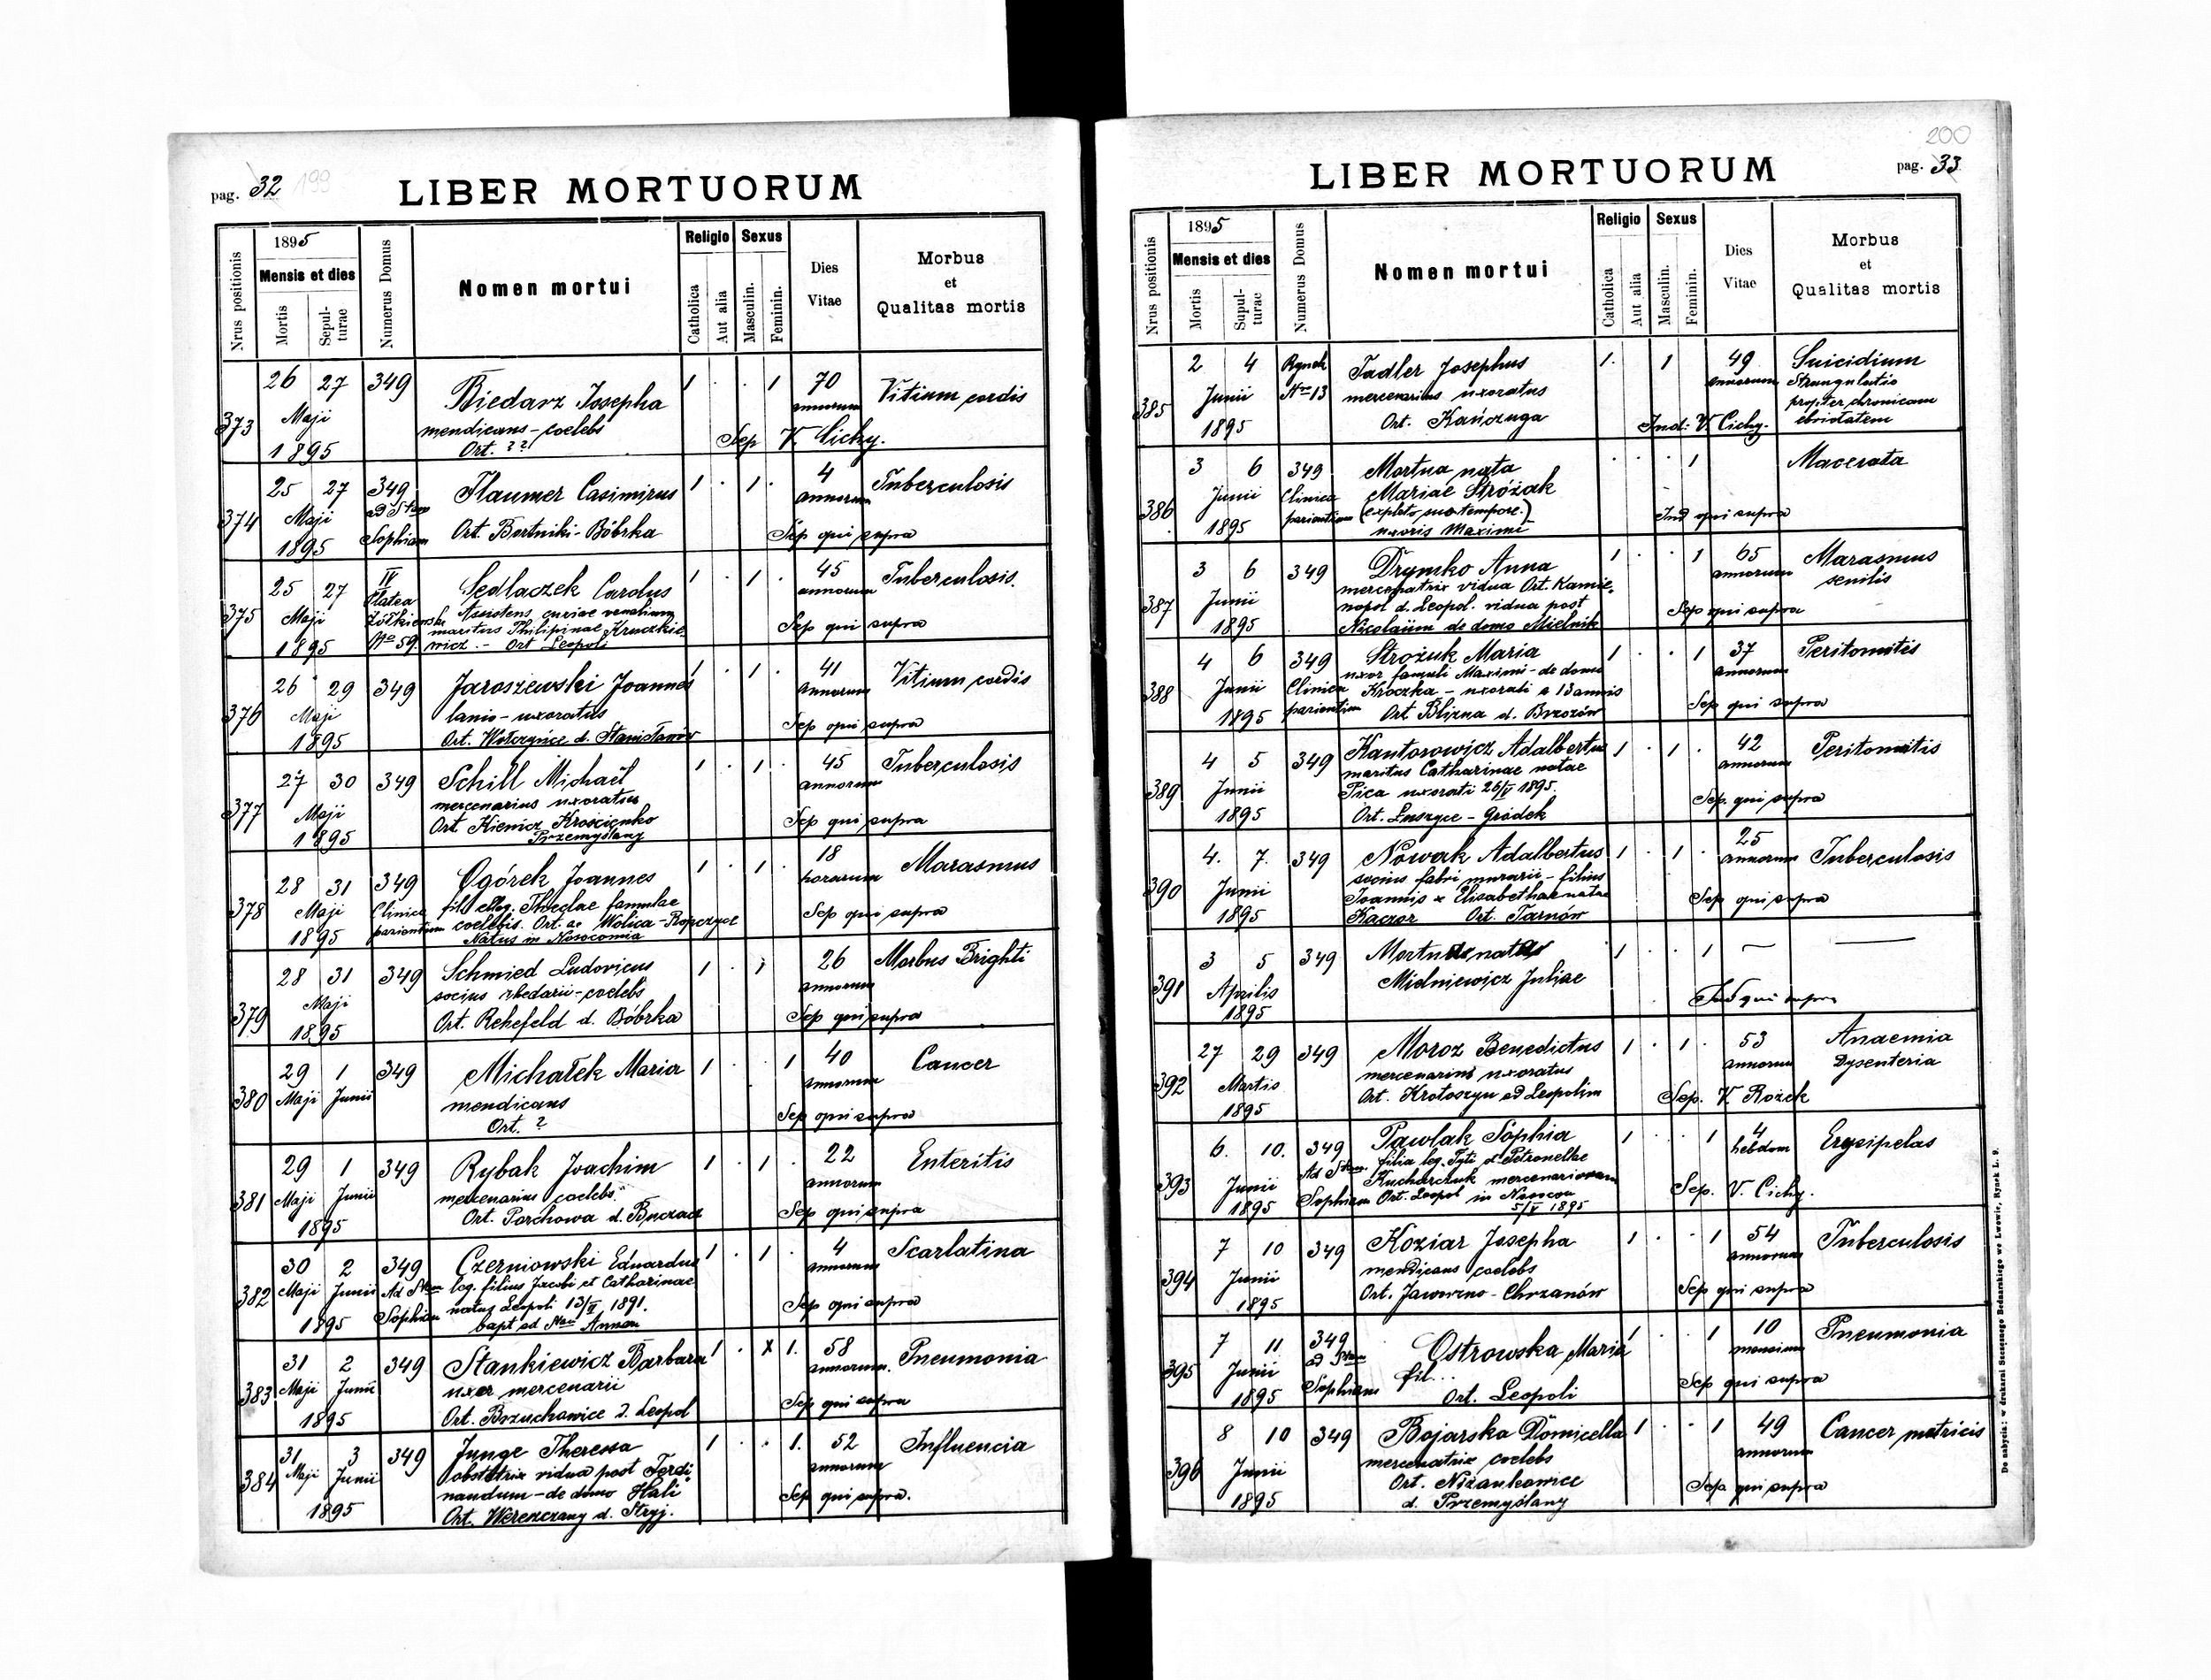 pag. 32 199
LIBER MORTUORUM
Nrus positionis
1895
Mensis et dies
Mortis
Sepulturae
Numerus Domus
Nomen mortui
Religio
Catholica
Aut alia
Sexus
Masculin.
Feminin.
Dies
Vitae
Morbus
et
Qualitas mortis
373 26 27 349 Biedarz Josepha 1 . . 1 70 Vitium cordis
Maji mendicans - coelebs annorum
1895 Ort. ?? Sep V. Cichy.
374 25 27 349 Flaumer Casimirus 1 . 1 . 4 Tuberculosis
Maji ad Stam annorum
1895 Sophiam Ort. Bortniki - Bóbrka Sep qui supra
375 25 27 IV Sedlaczek Carolus 1 . 1 . 45 Tuberculosis.
Maji Platea Assistens curiae venalium annorum
Żółkiewska maritus Philipinae Kruczkie
1895 Nro 59. wicz. - Ort Leopoli Sep qui supra
376 26 29 349 Jaroszewski Joannes 1 . 1 . 41 Vitium cordis
Maji lanio - uxoratus annorum
1895 Ort. d. Stanisławów Sep qui supra
377 27 30 349 Schill Michaël 1 . 1 . 45 Tuberculosis
Maji mercenarius uxoratus annorum
1895 Ort. Kienicz Krościenko Sep qui supra
Przemyślany
378 28 31 349 Ogórek Joannes 1 . 1 . 18 Marasmus
Maji Clinica fil. illeg. Theclae famulae horarum
1895 parientium coelebis. Ort. ac Wolica - Ropczyce Sep qui supra
Natus in Nosocomio
379 28 31 349 Schmied Ludovicus 1 . 1 26 Morbus Brighti
Maji socius rhedarii - coelebs annorum
1895 Ort. Rehefeld d. Bóbrka Sep qui supra
380 29 1 349 Michałek Maria 1 . 1 40 Cancer
Maji Junii mendicans annorum
Ort. ? Sep qui supra
381 29 1 349 Rybak Joachim 1 . 1 . 22 Enteritis
Maji Junii mercenarius coelebs annorum
1895 Ort. Porchowa d. Buczacz Sep qui supra
382 30 2 349 Czerniowski Eduardus 1 . 1 . 4 Scarlatina
Maji Junii Ad Stam leg. filius Jacobi et Catharinae annorum
1895 Sophiam natus Leopoli 13/ 1891. Sep qui supra
bapt ad Stam Annam
383 31 2 349 Stankiewicz Barbara 1 . x 1. 58 Pneumonia
Maji Junii uxor mercenarii annorum.
1895 Ort. Brzuchowice d. Leopol Sep qui supra
384 31 3 349 Junge Theressa 1 . . 1. 52 Influencia
Maji Junii obstetrix vidua post Ferdi annorum
1895 nandum - de domo Hali Sep qui supra.
Ort. Werenczany d. Stryj.
200
pag. 33
LIBER MORTUORUM
Nrus positionis
1895
Mensis et dies
Mortis
Supulturae
Numerus Domus
Nomen mortui
Religio
Catholica
Aut alia
Sexus
Masculin.
Feminin.
Dies
Vitae
Morbus
et
Qualitas mortis
385 2 4 Rynek Tadler Josephus 1. 1 49 Suicidium
Junii Nro 13 mercenarius uxoratus annorum Strangulatio
1895 Ort. Kańczuga propter chronicam
Ind: V. Cichy. ebrietatem
386 3 6 349 Mortua nata . . . 1 Macerata
Junii Clinica Mariae Stróżak
1895 parientium (expleto suo tempore.) Ind qui supra
uxoris Maximi
387 3 6 349 Drymko Anna 1 . . 1 65 Marasmus
Junii mercenatrix vidua Ort. Kamie annorum senilis
1895 nopol d. Leopol. vidua post Sep qui supra
Nicolaüm de domo Mielnik
388 4 6 349 Strożuk Maria 1 . . 1 37 Peritonitis
Junii Clinica uxor famuli Maximi - de domo annorum
1895 parientium Kroczka - uxorati a 13 annis Sep qui supra
Ort Blizna d. Brzozów
389 4 5 349 Kantorowicz Adalbertus 1 . 1 . 42 Peritonitis
Junii maritus Catharinae natae annorum
1895 Pica uxorati 26/V 1895. Sep. qui supra
Ort. - Gródek
390 4. 7. 349 Nowak Adalbertus 1 . 1 . 25 Tuberculosis
Junii socius fabri murarii - filius annorum
1895 Joannis & Elisabethae natae Sep qui supra
Kaczor Ort. Tarnów
391 3 5 349 1 . . 1 — —
Aprilis Midniewicz Juliae
1895 Ind qui supra
392 27 29 349 Moroz Benedictus 1 . 1 . 53 Anaemia
Martis mercenarius uxoratus annorum Dysenteria
1895 Ort. Krotoszyn ad Leopolim Sep. V. Rożek
393 6. 10. 349 Pawlak Sophia 1 . . 1 4 Erysipelas
Junii Ad Stam. filia leg. Tyti et Petronellae hebdom
1895 Sophiam Kucharczuk mercenariorum Sep. V. Cichy.
Ort. Leopol in Nosocom
5/V 1895
394 7 10 349 Koziar Josepha 1 . . 1 54 Tuberculosis
Junii mendicans coelebs annorum
1895 Ort. Jaworzno - Chrzanów Sep qui supra
395 7 11 349 Ostrowska Maria 1 . 1 10 Pneumonia
Junii ad Stam fil... mensium
1895 Sophiam Ort. Leopoli Sep qui supra
396 8 10 349 Bojarska Domicella 1 . . 1 49 Cancer matricis
Junii mercenatrix coelebs annorum
1895 Ort. Niżankowice Sep qui supra
d. Przemyślany
De nabycia: w drukarni Szczęsnego Bednarskiego we Lwowie, Rynek L. 9.